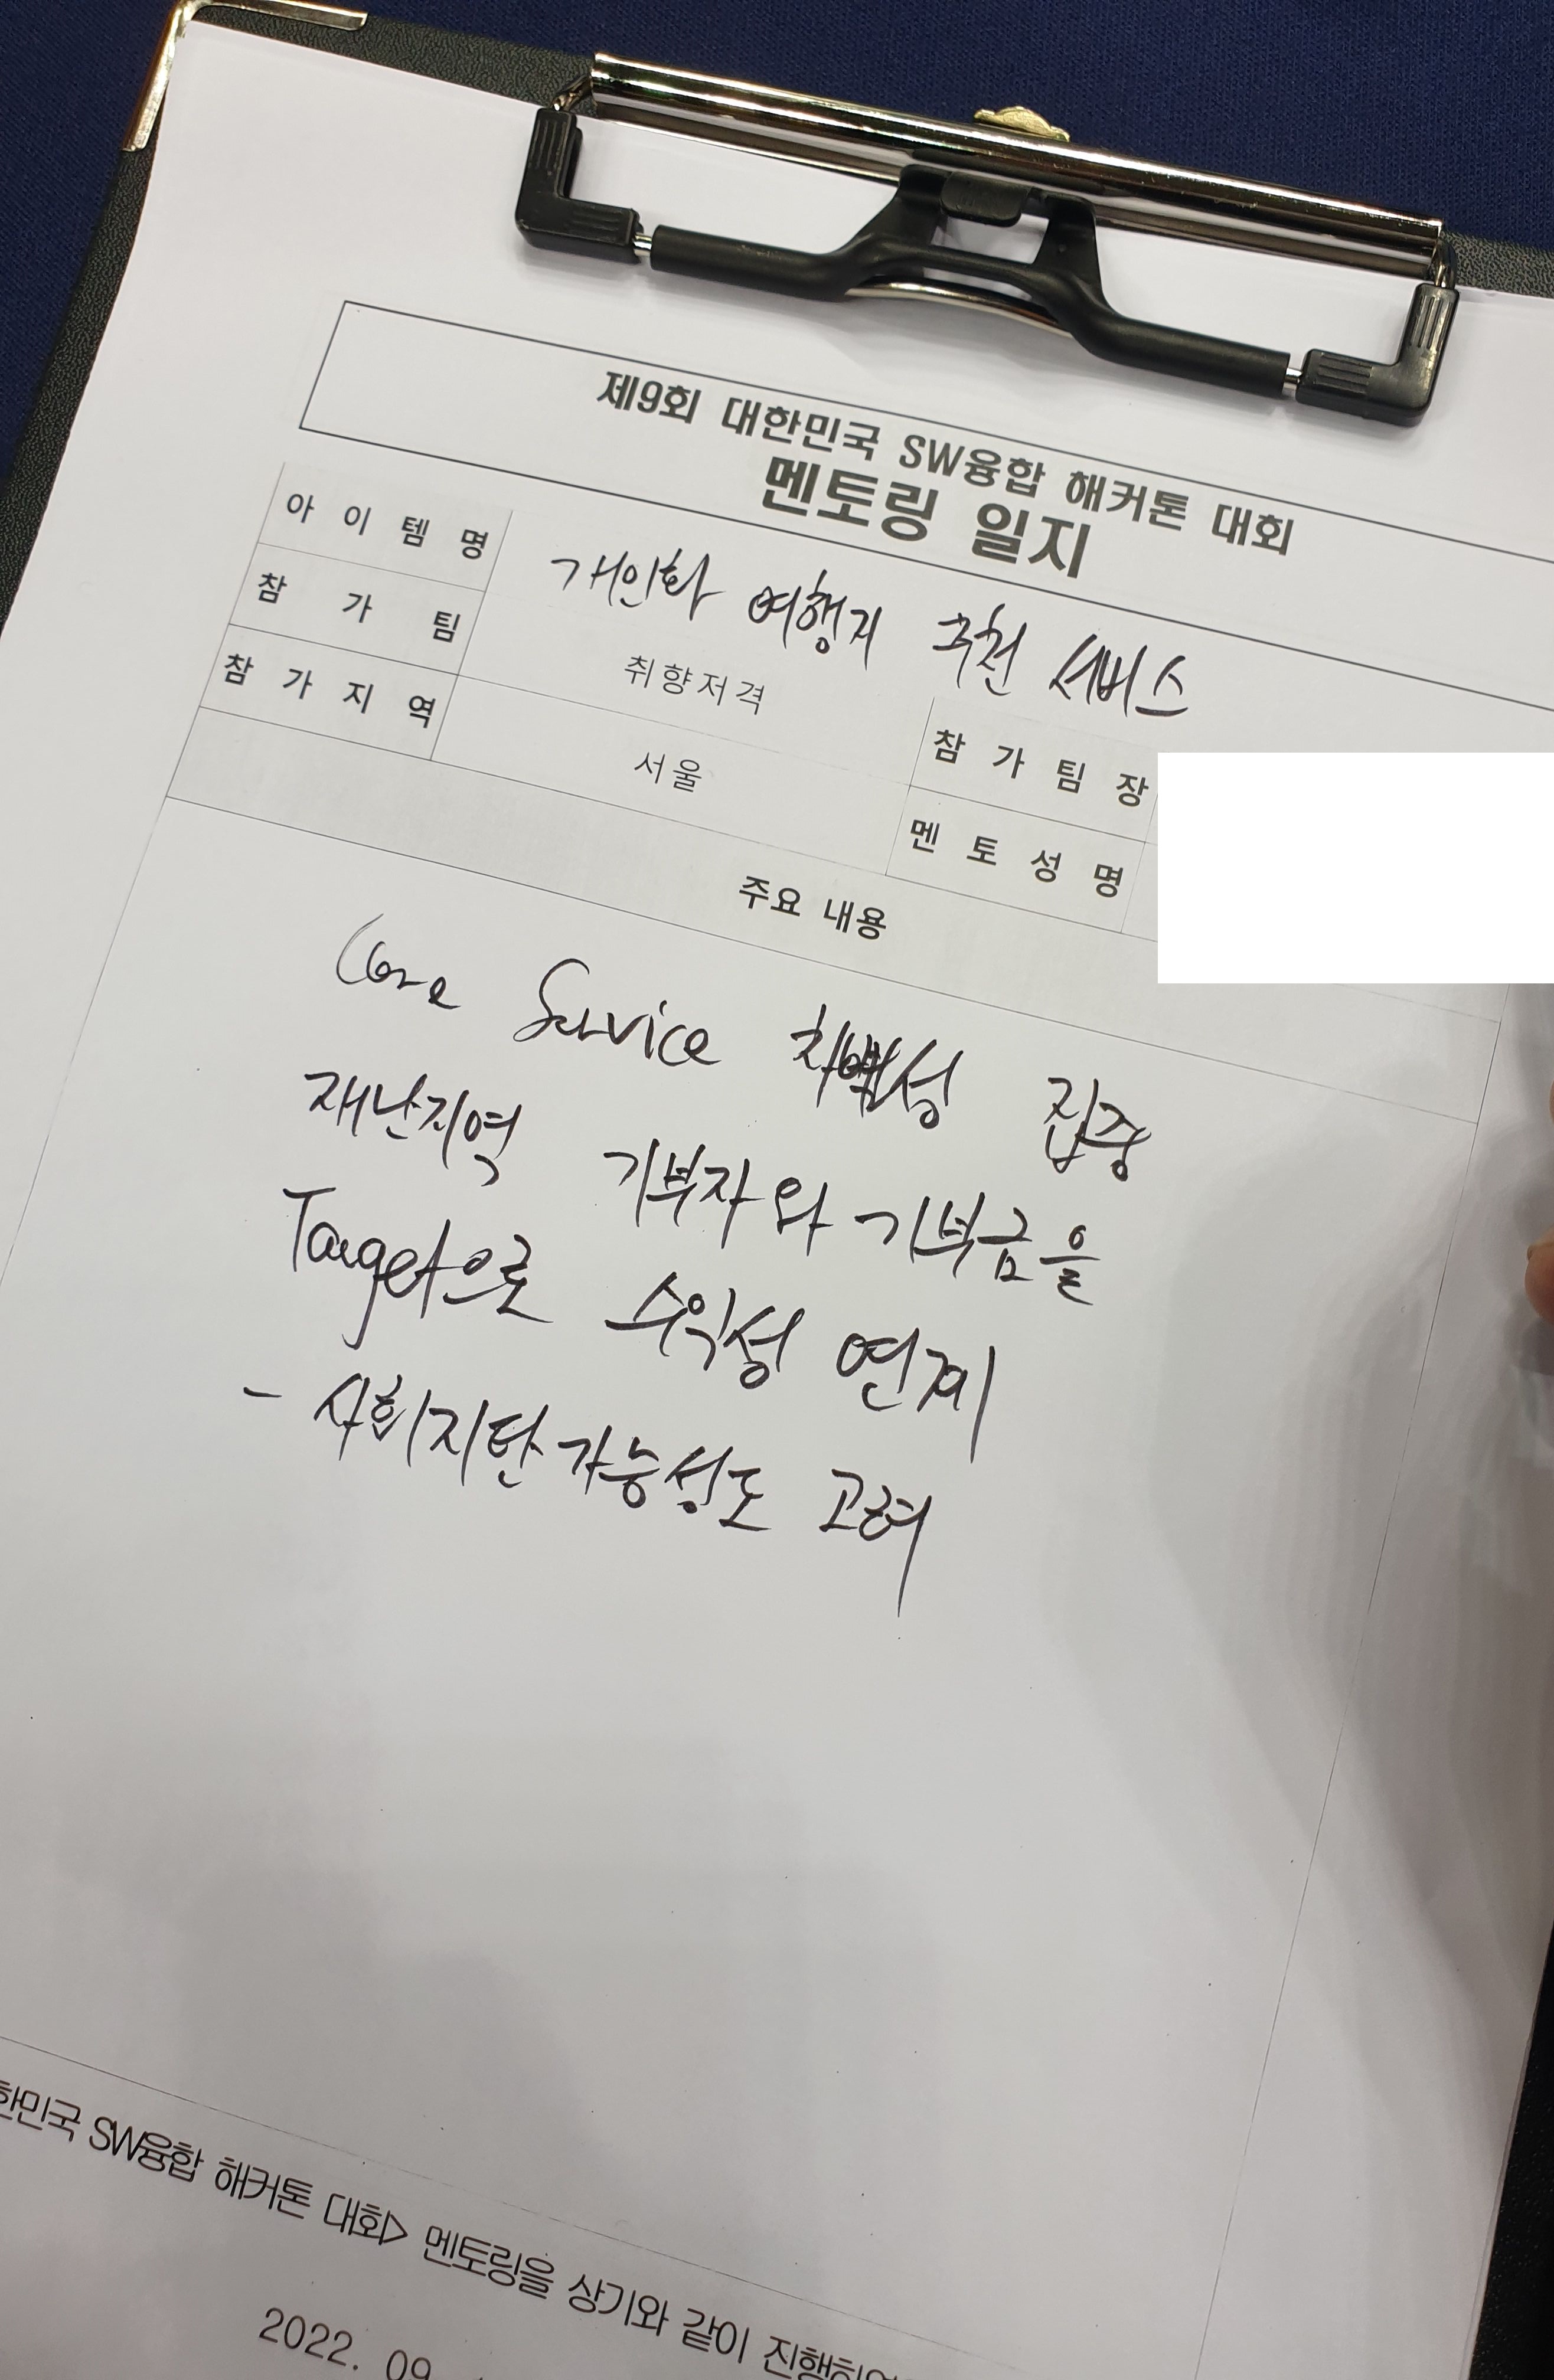 제9회 대한민국 SW융합 해커톤 대회
멘토링 일지
아이템명 개인화 여행지 추천 서비스
참가팀 취향저격 참가팀장
참가지역 서울 멘토성명
주요 내용
Core Service 차별성 집중
재난지역 기부자와 기부금을
Target으로 수익성 연계
- 사회지탄가능성도 고려
한민국 SW융합 해커톤 대회> 멘토링을 상기와 같이
2022. 09.